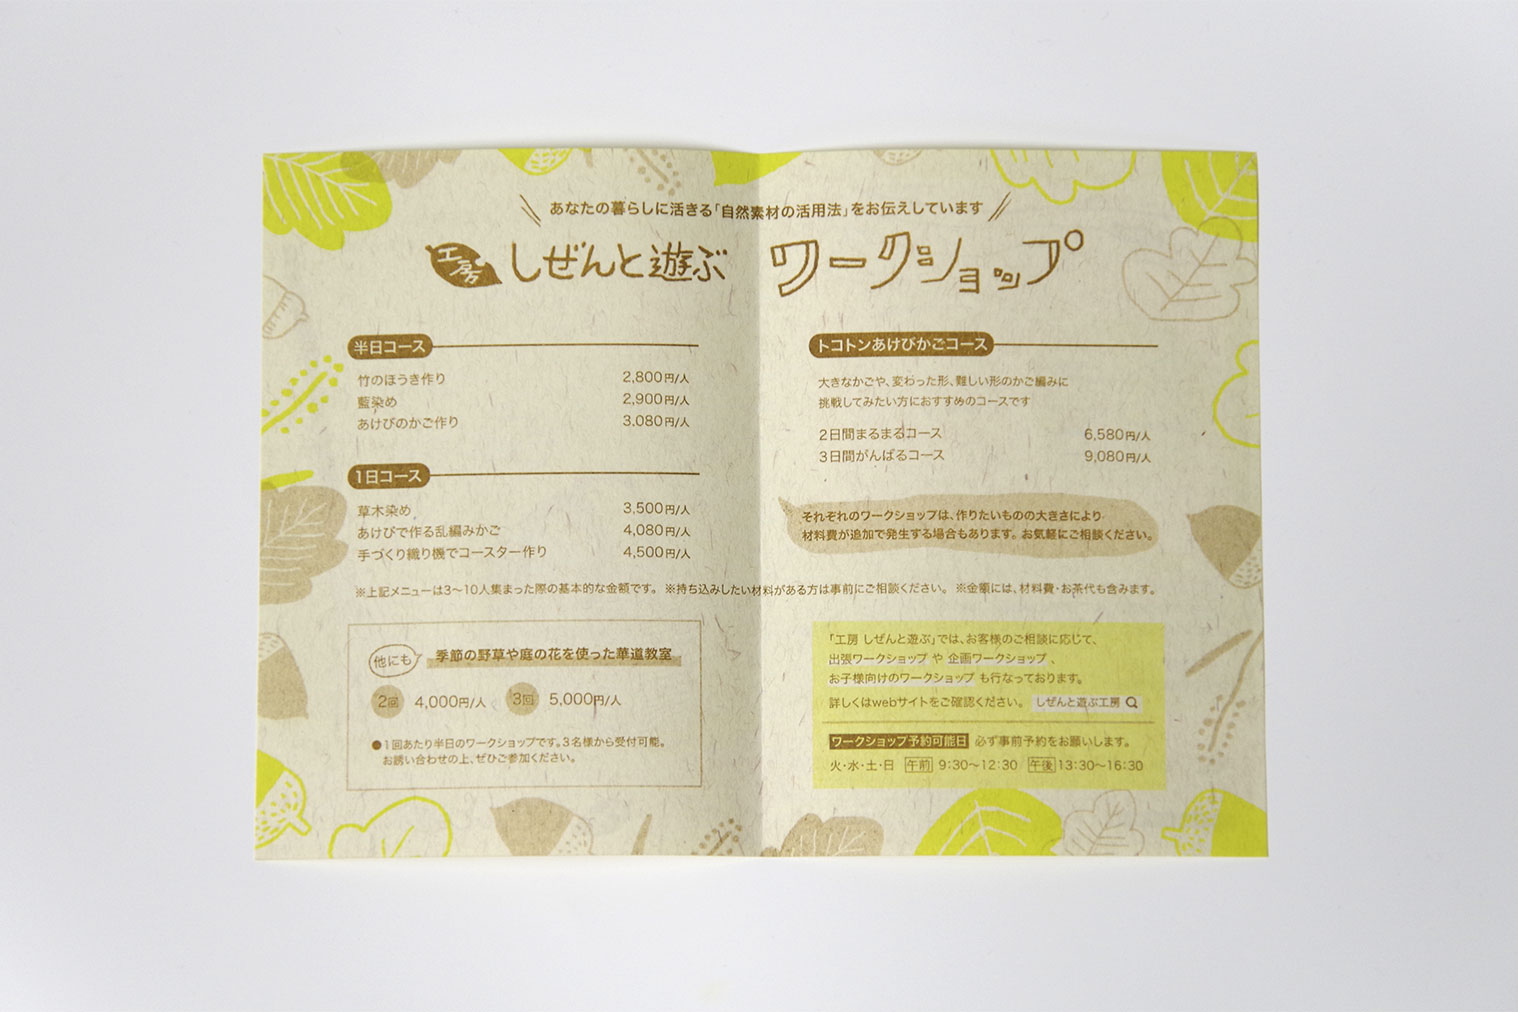 あなたの暮らしに活きる「自然素材の活用法」をお伝えしています
工房 しぜんと遊ぶ ワークショップ
半日コース
竹のほうき作り 2,800円/人
藍染め 2,900円/人
あけびのかご作り 3.080円/人
1日コース
草木染め 3,500円/人
あけびで作る乱編みかご 4,080円/人
手づくり織り機でコースター作り 4,500円/人
トコトンあけびかごコース
大きなかごや、変わった形、難しい形のかご編みに
挑戦してみたい方におすすめのコースです
2日間まるまるコース 6,580円/人
3日間がんばるコース 9,080円/人
それぞれのワークショップは、作りたいものの大きさにより
材料費が追加で発生する場合もあります。お気軽にご相談ください。
※上記メニューは3〜10人集まった際の基本的な金額です。 ※持ち込みしたい材料がある方は事前にご相談ください。 ※金額には、材料費・お茶代も含みます。
他にも 季節の野草や庭の花を使った華道教室
2回 4,000円/人 3回 5,000円/人
●1回あたり半日のワークショップです。3名様から受付可能。
お誘い合わせの上、ぜひご参加ください。
「工房 しぜんと遊ぶ」では、お客様のご相談に応じて、
出張ワークショップ や 企画ワークショップ 、
お子様向けのワークショップ も行なっております。
詳しくはwebサイトをご確認ください。 しぜんと遊ぶ工房
ワークショップ予約可能日 必ず事前予約をお願いします。
火・水・土・日 午前 9:30〜12:30 午後 13:30〜16:30